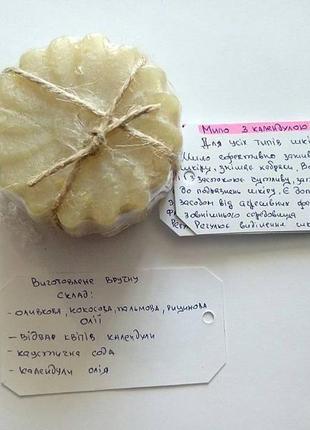 Мило з календулою
Для усіх типів шкі
Мило ефективно
шкіру, знімає набряк, В
заспокоює чутливу,
до подразнень шкіру. Є
засобом від
зовнішнього середовища
Регулює виділення шк
Виготовлене вручну
склад:
- оливкова, кокосова, пальмова, рицинова
олії
- відвар квітів календули
- каустична сода
- календули олія